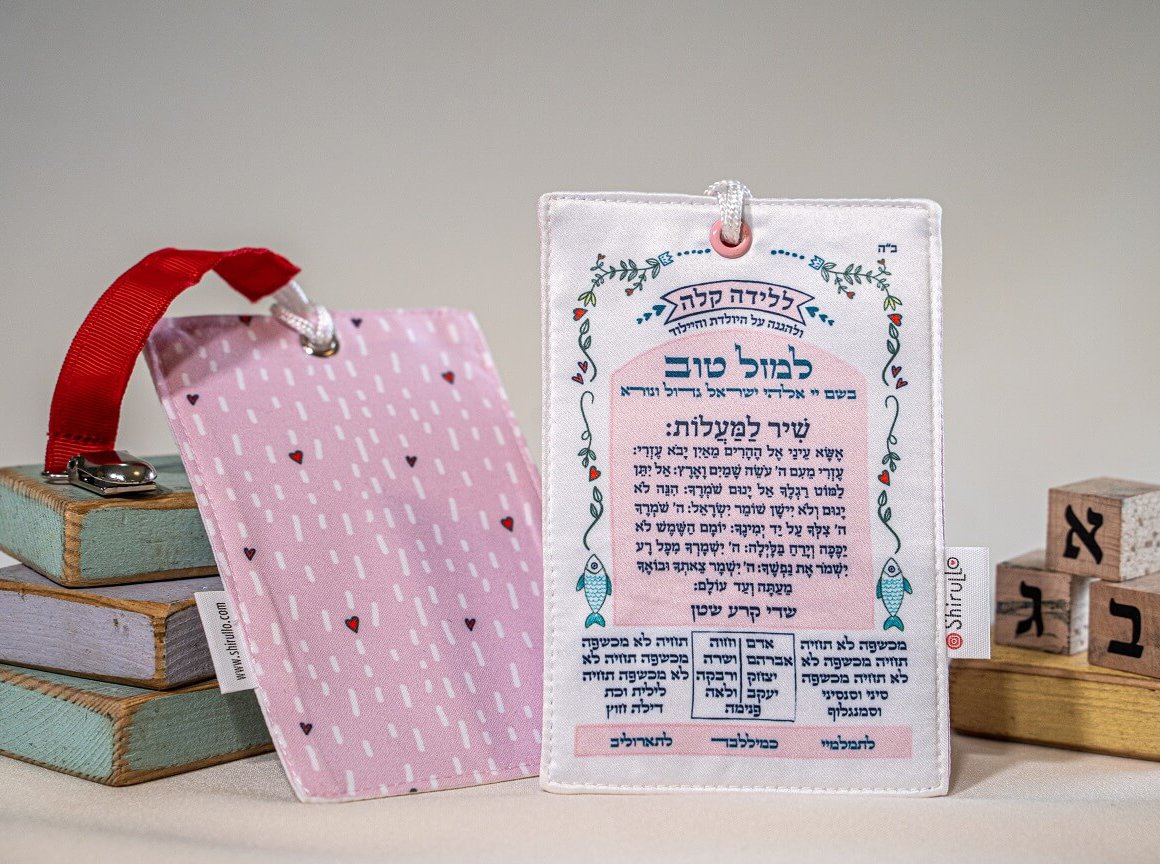 ב"ה
ללידה קלה
ולהגנה על היולדת והיילוד
למזל טוב
בשם יי אלהי ישראל גדול ונורא
שִׁיר לַמַּעֲלוֹת:
אֶשָּׂא עֵינַי אֶל הֶהָרִים מֵאַיִן יָבֹא עֶזְרִי:
עֶזְרִי מֵעִם ה' עֹשֵׂה שָׁמַיִם וָאָרֶץ: אַל יִתֵּן
לַמּוֹט רַגְלֶךָ אַל יָנוּם שֹׁמְרֶךָ: הִנֵּה לֹא
יָנוּם וְלֹא יִישָׁן שׁוֹמֵר יִשְׂרָאֵל: ה' שֹׁמְרֶךָ
ה' צִלְּךָ עַל יַד יְמִינֶךָ: יוֹמָם הַשֶּׁמֶשׁ לֹא
יַכֶּכָּה וְיָרֵחַ בַּלָּיְלָה: ה' יִשְׁמָרְךָ מִכָּל רָע
יִשְׁמֹר אֶת נַפְשֶׁךָ: ה' יִשְׁמָר צֵאתְךָ וּבוֹאֶךָ
מֵעַתָּה וְעַד עוֹלָם:
שדי קרע שטן
מכשפה לא תחיה
תחיה מכשפה לא
לא תחיה מכשפה
סיני וסנסיני
וסמנגלוף
אדם וחוה
אברהם ושרה
יצחק ורבקה
יעקב ולאה
פנימה
תחיה לא מכשפה
מכשפה תחיה לא
לא מכשפה תחיה
לילית וכת
דילה חוץ
לתמלמיי כמיללבד לתארוליב
Shirullo
www.shirullo.com
א
ב
ג